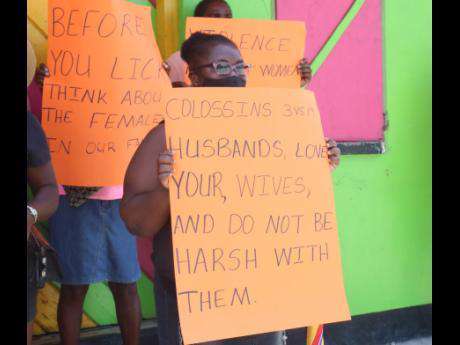 BEFORE
YOU LICK
THINK ABOU
THE FEMALE
IN OUR
VIOLENCE
WOMEN
COLOSSINS 3vs
HUSBANDS, LOVE
YOUR, WIVES,
AND DO NOT BE
HARSH WITH
THEM.